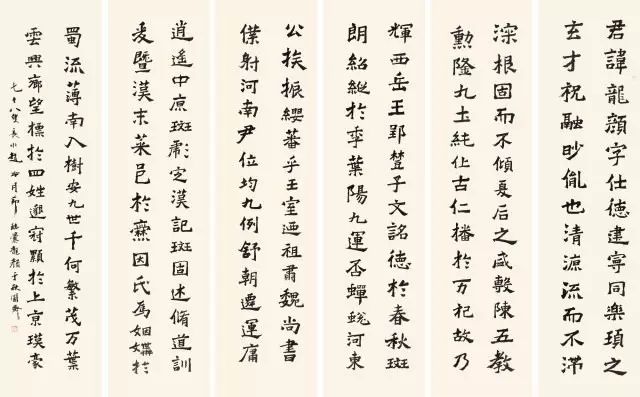 君諱龍顔字仕德建寧同樂頊之
玄才祝融眇胤也清源流而不滯
深根固而不傾夏后之盛敷陳五教
勳隆九土純化古仁播於万祀故乃
輝西岳王郢楚子文詺德於春秋斑
朗紹縱於季葉陽九運否蟬蛻河東
公族振纓蕃乎王室迺祖肅魏尚書
僕射河南尹位均九例舒朝遷運庸
逍遥中原斑彪定漢記斑固述脩道訓
爰暨漢末菜邑於爨因氏焉姻媾於
蜀流薄南入樹安九世千何繁茂万葉
雲興廊望標於四姓邈冠顯於上京瑛豪
七十八叟長水趙冷月節臨爨龍顔于缺圓齋